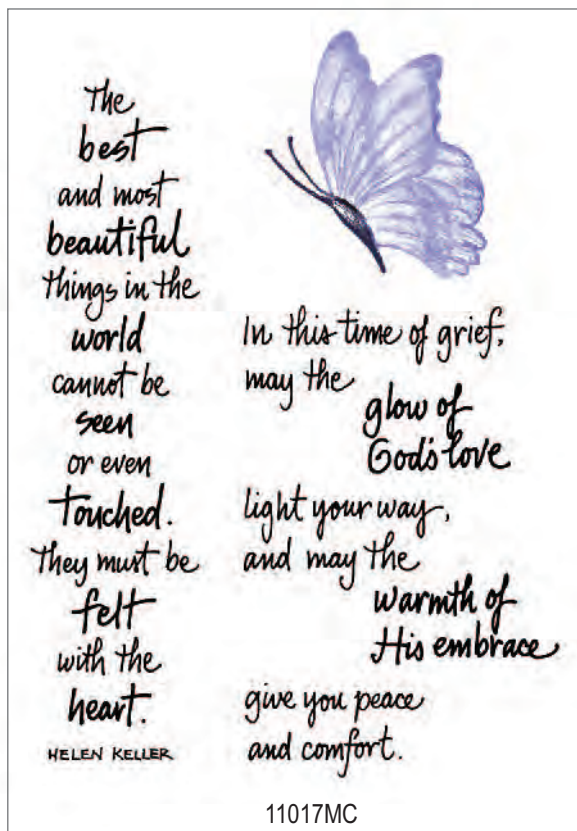 The
best
and most
beautiful
things in the
world
cannot be
seen
or even
touched.
They must be
felt
with the
heart.
HELEN KELLER
In this time of grief,
may the
glow of
God's love
light your way,
and may the
warmth of
His embrace
give you peace
and comfort.
11017MC